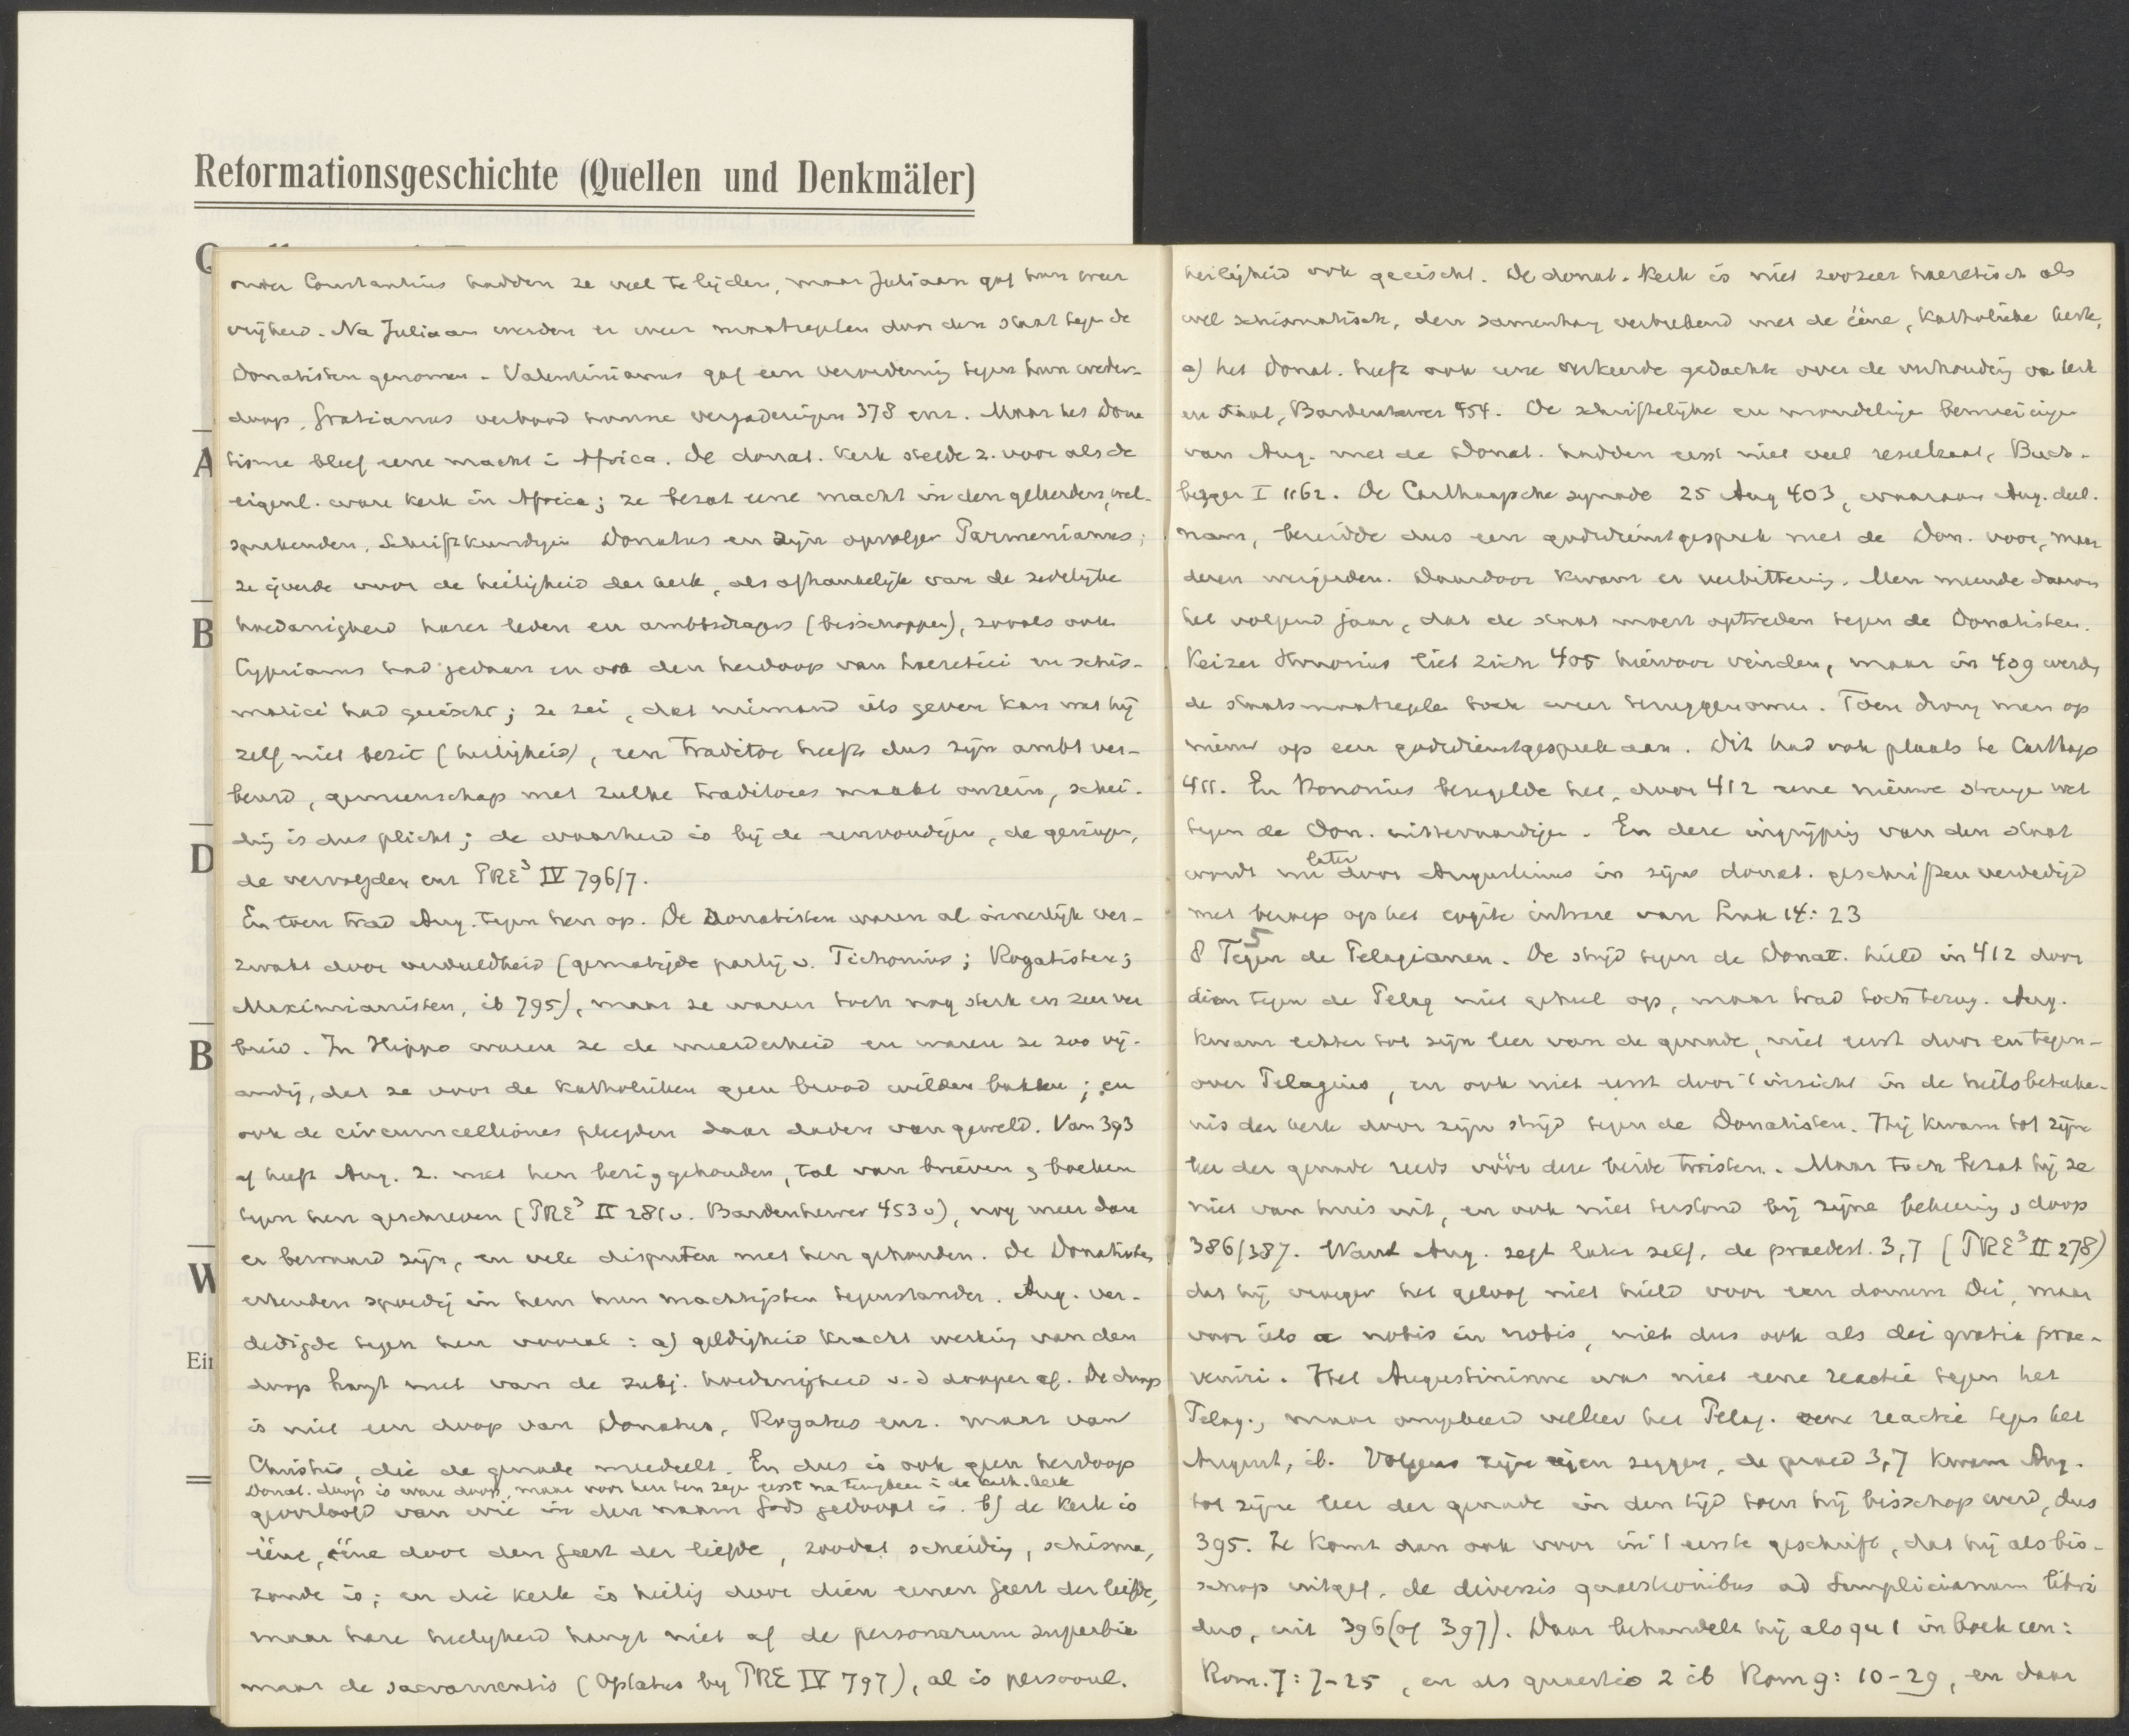 Reformationsgeschichte (Quellen und Denkmäler)
A
B
D
B
W
Ein
onder Constantius hadden ze veel te lijden, maar Juliaan gaf hun weer
vrijheid. Na Juliaan werden er weer maatregelen door den staat tegen de
Donatisten genomen. Valentinianus gaf een verordening tegen hun weder-
doop, Gratianus verbood hunne vergaderingen 378 enz. Maar het Dona
tisme bleef eene macht in Africa. De donat. kerk stelde z. voor als de
eigenl. ware kerk in Africa; ze bezat eene macht in den geleerden, wel-
sprekenden, Schriftkundigen Donatus en zijn opvolger Parmenianus;
ze ijverde voor de heiligheid der kerk, als afhankelijk van de zedelijke
hoedanigheid harer leden en ambtsdragers (bisschoppen), zooals ook
Cyprianus had gedaan en den herdoop van haeretici en schis-
matici had geëischt; ze zei, dat niemand iets geven kan wat hij
zelf niet bezit (heiligheid), een traditor heeft dus zijn ambt ver-
beurd, gemeenschap met zulke traditores maakt onrein, schei-
ding is dus plicht; de waarheid is bij de eenvoudigen, de geringen,
de vervolgden enz PRE³ IV 796/7.
En toen trad Aug. tegen hen op. De Donatisten waren al innerlijk ver-
zwakt door verdeeldheid (gematigde partij v. Tichonius; Rogatisten;
Maximianisten, ib 795), maar ze waren toch nog sterk en zeer ver
breid. In Hippo waren ze de meerderheid en waren ze zoo vij-
andig, dat ze voor de Katholieken geen brood wilden bakken; en
ook de circumcelliones pleegden daar daden van geweld. Van 393
af heeft Aug. z. met hen bezig gehouden, tal van brieven & boeken
tegen hen geschreven (PRE³ II 281 v. Bardenhewer 453 v), nog meer dan
er bewaard zijn, en vele disputen met hen gehouden. De Donatisten
erkenden spoedig in hem hun machtigsten tegenstander. Aug. ver-
dedigde tegen hen vooral: a) geldigheid kracht werking van den
doop hangt niet van de subj. hoedanigheid v. d dooper af. De doop
is niet een doop van Donatus, Rogatus enz. maar van
Christus, die de genade meedeelt. En dus is ook geen herdoop
Donat. doop is ware doop, maar voor hen ten zegen eerst na terugkeer in de kath. kerk
geoorloofd van wie in den naam Gods gedoopt is. b) de kerk is
ééne, ééne door den Geest der liefde, zoodat scheiding, schisma,
zonde is; en die kerk is heilig door dien eenen Geest der liefde,
maar hare heiligheid hangt niet af de personarum superbia
maar de sacramentis (Optatus bij PRE IV 797), al is persoonl.
heiligheid ook geëischt. De donat. Kerk is niet zoozeer haeretisch als
wel schismatisch, den samenhang verbrekend met de ééne, Katholieke kerk,
c) het Donat. heeft ook eene verkeerde gedachte over de verhouding van kerk
en staat, Bardenhewer 454. De schriftelijke en mondelinge bemoeiingen
van Aug. met de Donat. hadden eerst niet veel resultaat, Buch-
berger I 1162. De Carthaagsche synode 25 Aug 403, waaraan Aug. deel-
nam, bereidde dus een godsdienstgesprek met de Don. voor, maar
dezen weigerden. Daardoor kwam er verbittering. Men meende daarom
het volgend jaar, dat de staat moest optreden tegen de Donatisten.
Keizer Honorius liet zich 405 hiervoor vinden, maar in 409 werden
de staatsmaatregelen toch weer teruggenomen. Toen drong men op
nieuw op een godsdienstgesprek aan. Dit had ook plaats te Carthago
411. En Honorius bezegelde het, door 412 eene nieuwe strenge wet
tegen de Don. uittevaardigen. En deze ingrijping van den staat
wordt nu later door Augustinus in zijne donat. geschriften verdedigd
met beroep op het cogite intrare van Luk 14:23
8 Tegen de Pelagianen. De strijd tegen de Donat. hield in 412 door
dien tegen de Pelag niet geheel op, maar trad toch terug. Aug.
kwam echter tot zijn leer van de genade, niet eerst door en tegen-
over Pelagius, en ook niet eerst door 't inzicht in de heilsbeteeke-
nis der kerk door zijn strijd tegen de Donatisten. Hij kwam tot zijne
leer der genade reeds vóór deze beide twisten. Maar toch bezat hij ze
niet van huis uit, en ook niet terstond bij zijne bekeering & doop
386/387. Want Aug. zegt later zelf, de praedest. 3,7 (PRE³ II 278)
dat hij vroeger het geloof niet hield voor een donum Dei, maar
voor iets a nobis in nobis, niet dus ook als dei gratia prae-
veniri. Het Augustinisme was niet eene reactie tegen het
Pelag., maar omgekeerd veeleer het Pelag. eene reactie tegen het
August, ib. Volgens zijn eigen zeggen, de praed 3,7 kwam Aug.
tot zijne leer der genade in den tijd toen hij bisschop werd, dus
395. Ze komt dan ook voor in 't eerste geschrift, dat hij als bis-
schop uitgaf, de diversis quaestionibus ad Simplicianum libri
duo, uit 396 (of 397). Daar behandelt hij als qu 1 in boek een:
Rom. 7:7-25, en als quaestio 2 ib Rom 9: 10-29, en daar